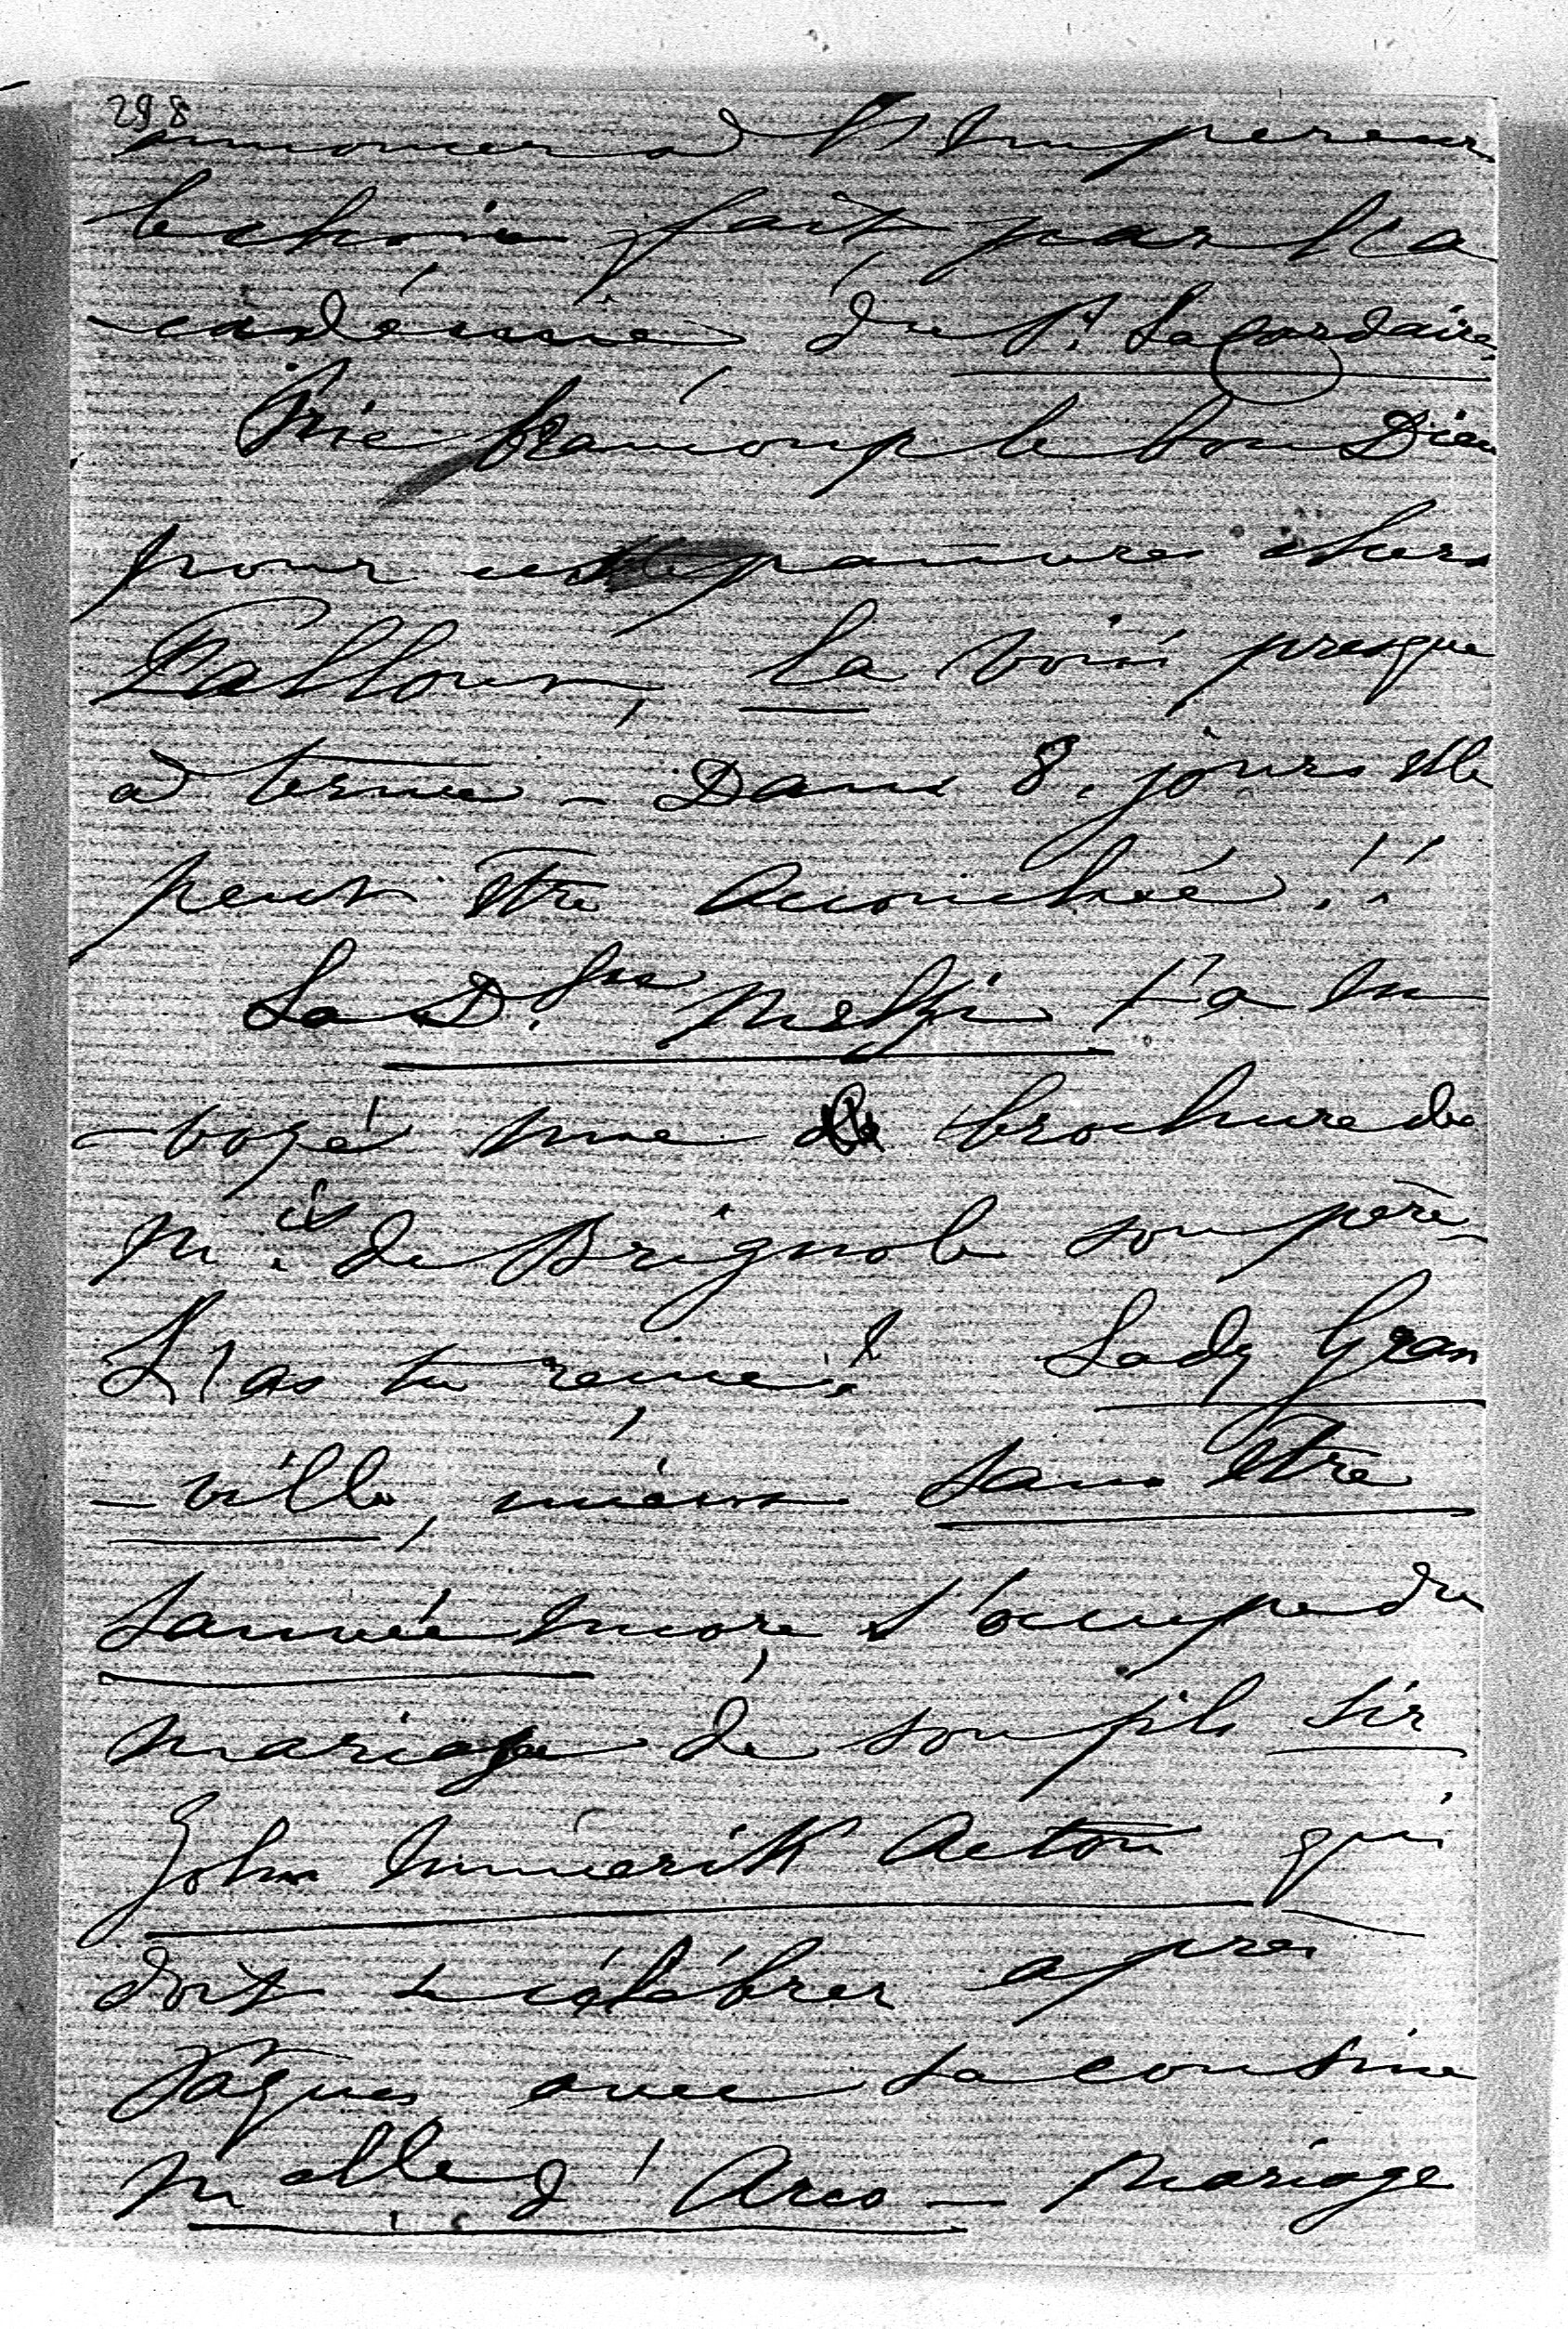 298
annoncer à l'Empereur
le choix fait par l'A
cadémie du P. Lacordaire,
Prie beaucoup le bon Dieu
pour ces pauvres chers
Falloux, La voici presque
à terme - Dans 8. jours elle
peut être accouchée!!
La D.sse Melzi t'a en
-voyé une brochure du
M.is de Brignole son père-
L'as tu reçue? Lady Gran
-ville, mieux sans être
sauvée encore s'occupe du
mariage de son fils Sir
John Emmerik Acton qui
doit se célébrer après
Pâques avec sa cousine
Melle d'Arco - Mariage